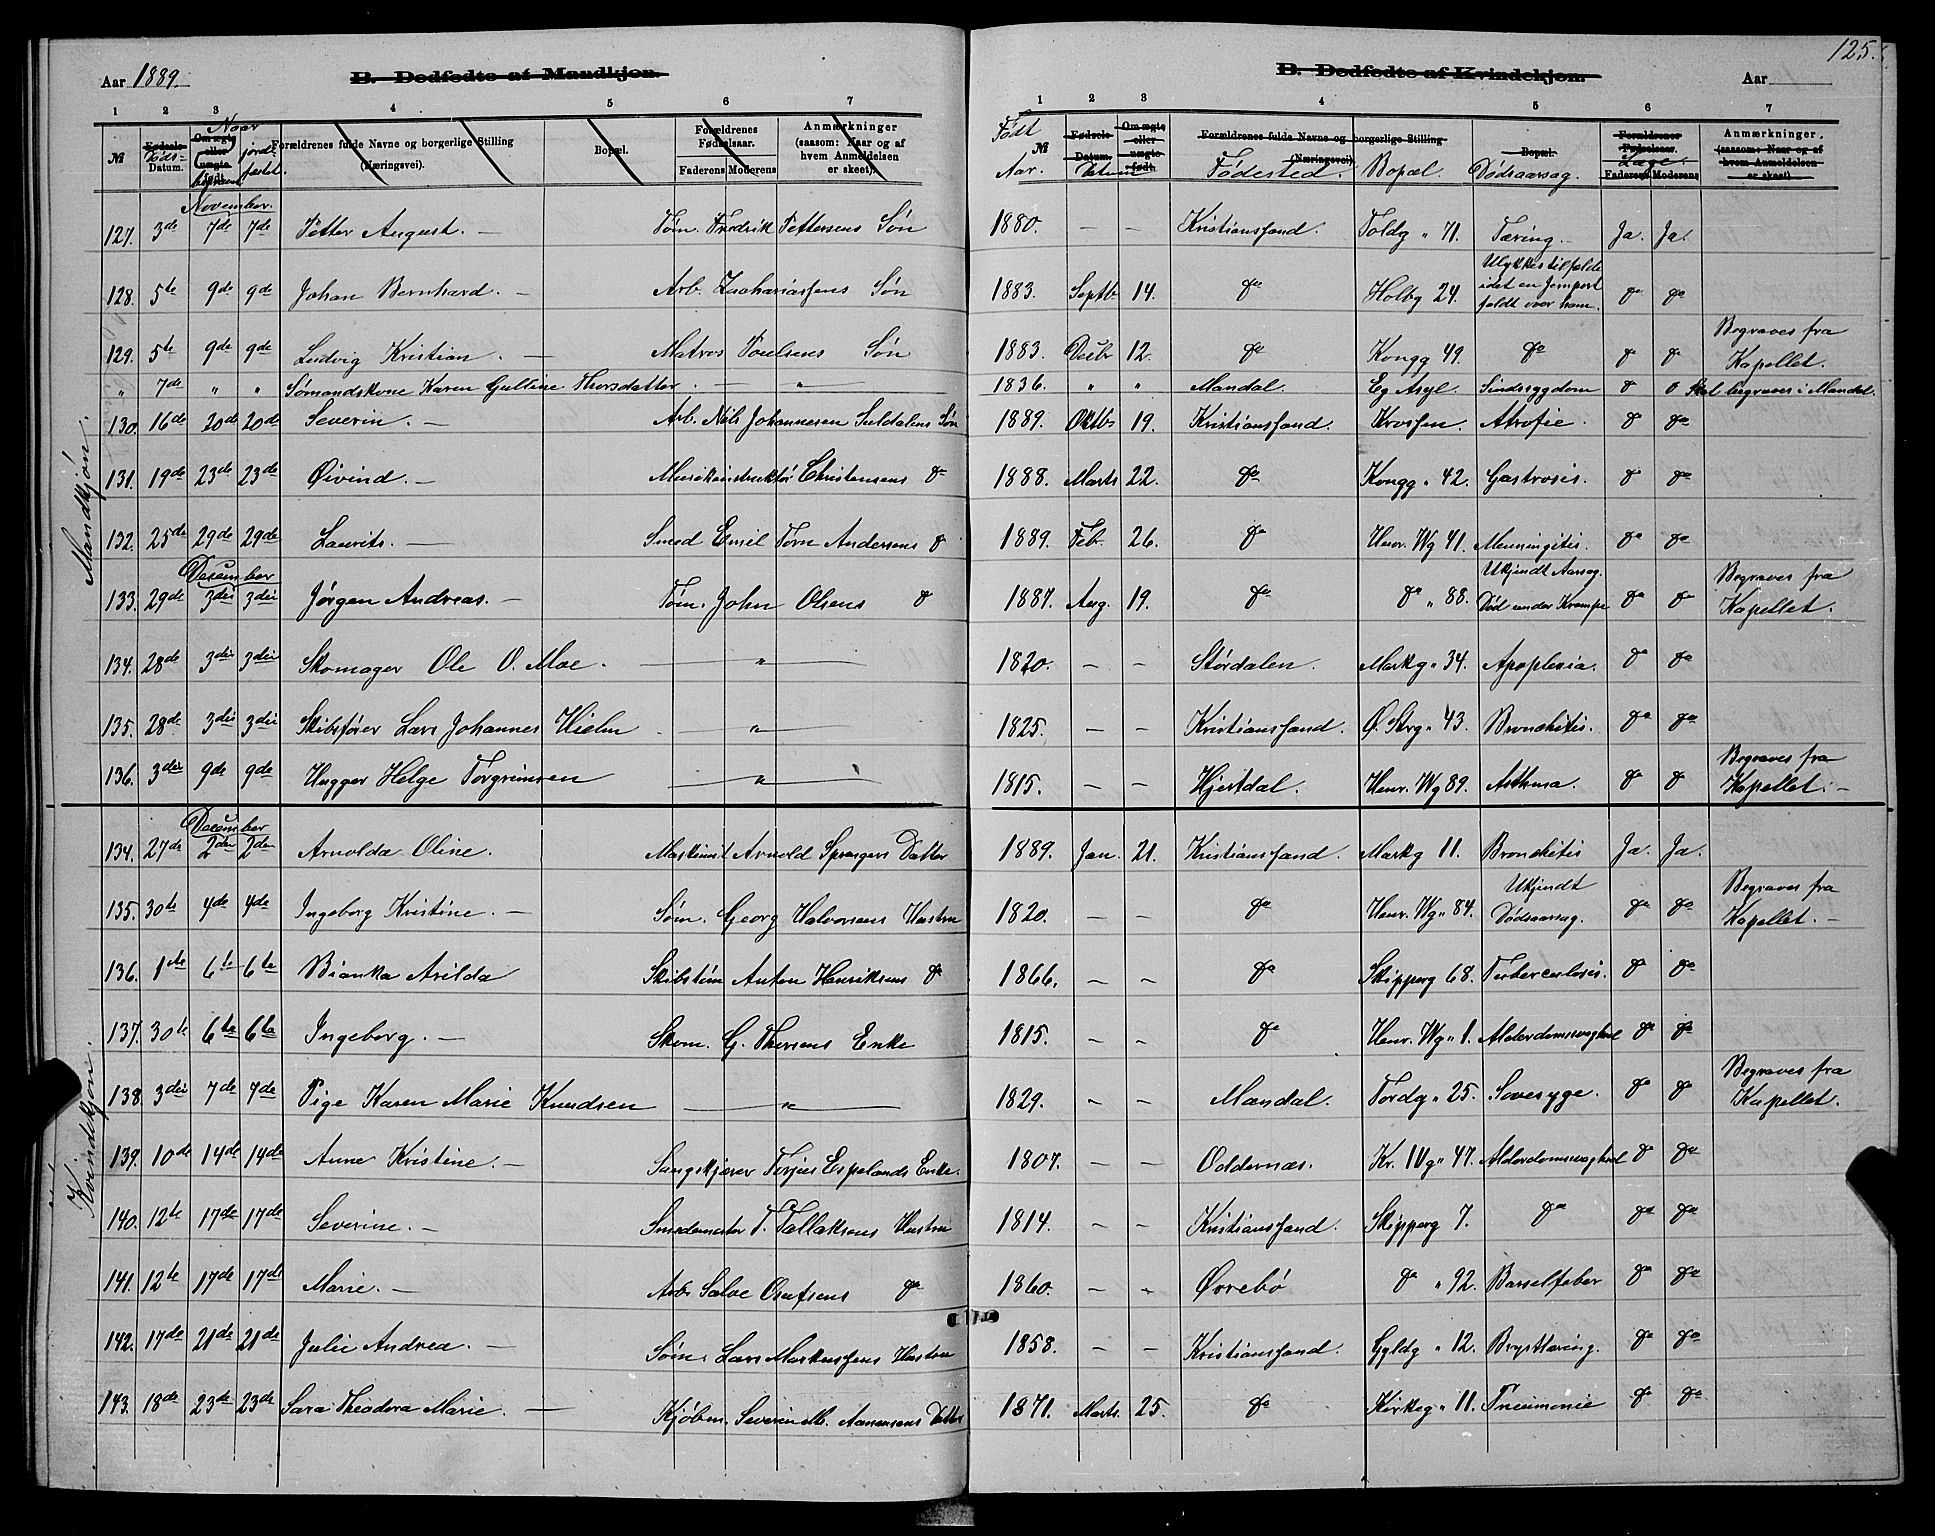 Aar 1889. B. Dødfødte af Mandkjøn. B. Dødfødte af Kvindekjøn. Aar 125.
1 2 3 4 5 6 7 1 2 3 4 5 6 7
№ Fødsels- Døds- Datum. Om ægte eller uægte født. Naar begravet jordfæstet. Forældrenes fulde Navne og borgerlige Stilling (Næringsvei). Bopæl. Forældrenes Fødselsaar. Faderens Moderens Anmærkninger (saasom: Naar og af hvem Anmeldelsen er skeet).
Født № Aar. Fødsels-Datum. Datum Om ægte eller uægte født. Forældrenes fulde Navne og borgerlige Stilling (Næringsvei). Fødested. Bopæl. Bopæl. Dødsaarsag. Forældrenes Fødselsaar. Læge. Faderens Moderens Anmærkninger. (saasom: Naar og af hvem Anmeldelsen er skeet).
Mandkjøn.
November.
127. 3de 7de 7de Petter August. — Tøm. Fredrik Pettersens Søn 1880. — — Kristianssand. Toldg " 71. Tæring. — Ja. Ja.
128. 5te 9de 9de Johan Bernhard. — Arb. Zachariassens Søn 1883. Septb 14. do Holbg 24. Ulykkestilfælde idet en Jernport faldt over ham. do do
129. 5te 9de 9de Ludvig Kristian. — Matros Poulsens Søn 1883. Decbr 12. do Kongg 49. do do do Begraves fra Kapellet.
" 7de " " Sømandskone Karen Gulline Thorsdatter. — " — 1836. " " Mandal. Eg Asyl. Sindssygdom do do Skal begraves i Mandal.
130. 16de 20de 20de Severin. — Arb. Nils Johannesen Suldalens Søn 1889. Oktb 19. Kristianssand. Krossen. Atrofie. do do
131. 19de 23de 23de Øivind. — Musikinstruktør Christensens do 1888. Marts 22. do Kongg " 42. Gastrosis. do do
132. 25de 29de 29de Laurits. — Smed Emil Tørn Andersens do 1889. Feb. 26. do Henr. Wg 41. Menningitis. do do
December
133. 29de 3die 3die Jørgen Andreas. — Tøm. John Olsens do 1887. Aug. 19. do do " 88. Ukjendt Aarsag. Død under Krampe do do Begraves fra Kapellet.
134. 28de 3die 3die Skomager Ole O. Moe. — " — 1820. — — Størdalen. Markg " 34. Apoplexia. do do
135. 28de 3die 3die Skibsfører Lars Johannes Hielm — " — 1825. — — Kristianssand. Ø. Strg " 43. Bronchitis. do do
136. 3die 9de 9de Hugger Helge Torgrimsen — " — 1815. — — Hjertdal. Henr. Wg 89. Asthma. do do Begraves fra Kapellet. —
Kvindekjøn.
December
134. 27de 2den 2den Arnolda Oline. Maskinist Arnold Sprangers Datter 1889. Jan. 21. Kristianssand. Markg 11. Bronchitis Ja. Ja.
135. 30te 4de 4de Ingeborg Kristine. — Søm. Georg Halvorsens Hustru 1820. — — do Henr. Wg " 84. Ukjendt Dødsaarsag. do do Begraves fra Kapellet. —
136. 1ste 6te 6te Bianka Arilda Skibstøm Anton Henriksens do 1866. — — do Skipperg 68. Tuberculosis. do do
137. 30te 6te 6te Ingeborg. — Skom. G. Thorsens Enke 1815. — — do Henr. Wg " 1. Alderdomssvaghed do do
138. 3die 7de 7de Pige Karen Marie Knudsen — " — 1829. — — Mandal. Tordg " 25. Sovesyge. do do Begraves fra Kapellet.
139. 10de 14de 14de Anne Kristine. — Sangskjører Terjus Espelands Enke. 1807. — — Oddernæs. Kr. IVg " 47. Alderdomssvaghed do do
140. 12te 17de 17de Severine. — Smedemester T. Tallaksens Hustru 1814. — — Kristianssand. Skipperg 7. do do do
141. 12te 17de 17de Marie. — Arb Salve Olufsens do 1860. — — Øvrebø do " 92. Barselfeber do do
142. 17de 21de 21de Julie Andrea. — Søm. Lars Markussens Hustru 1858. — — Kristianssand. Gyldg " 12. Brysttæring. do do
143. 18de 23de 23de Sara Theodora Marie. — Kjøbm. Severin M. Aanensens Datter 1871. Marts. 25. do Kirkeg " 11. Pneumonie do do